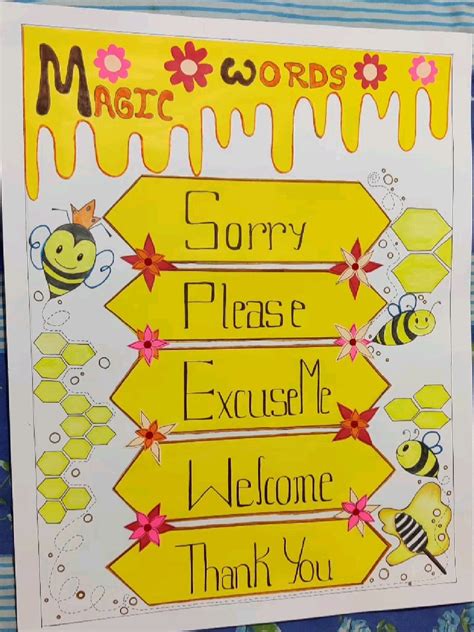 Magic Words
Sorry
Please
Excuse Me
Welcome
Thank You